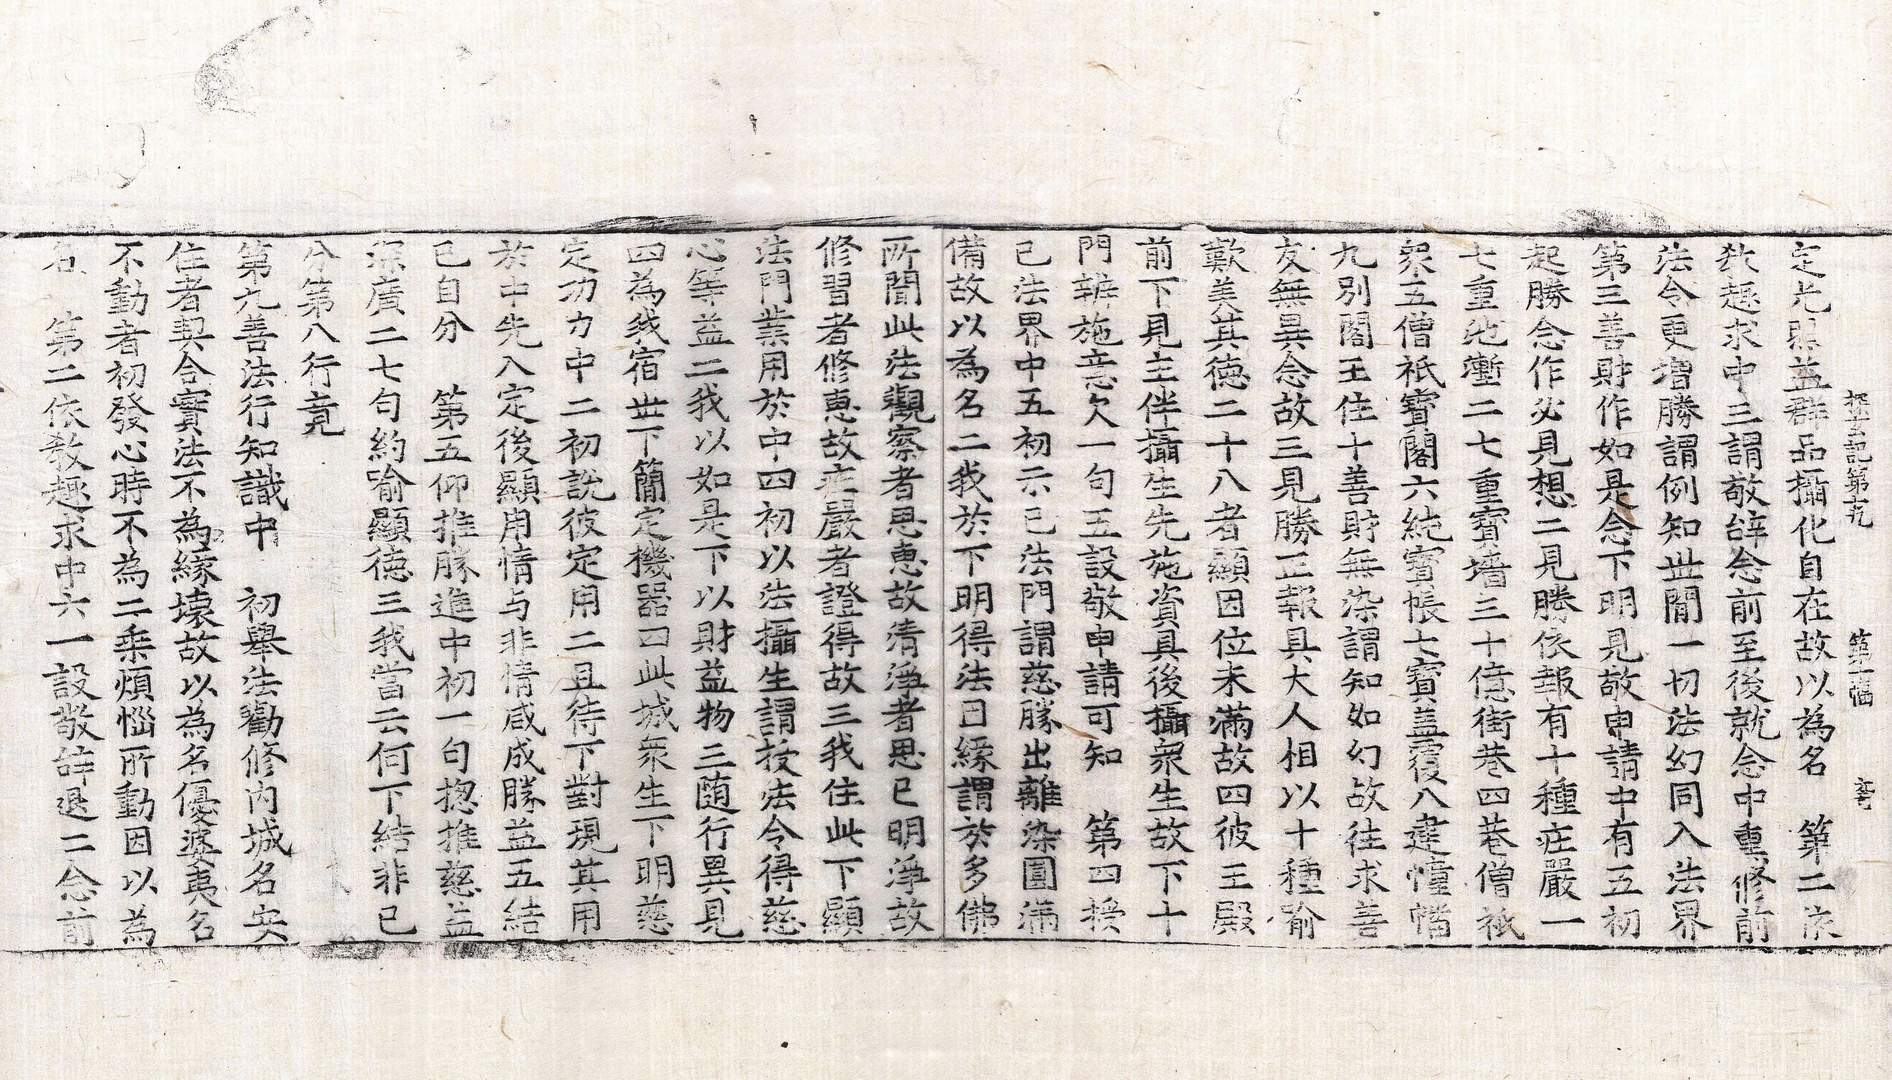 探玄記第十九　第一幅　弯
定光照益群品攝化自在故以為名　第二依
敎趣求中三謂敬辝念前至後就念中重修前
法令更增勝謂例知世閒一切法幻同入法界
第三善財作如是念下明見敬申請中有五初
起勝念作必見想二見勝依報有十種庄嚴一
七重池壍二七重寶墻三十億街巷四巷僧祇
衆五僧祇寶閣六純寶帳七寶盖覆八建幢幡
九別閣王住十善財無染謂知如幻故往求善
友無異念故三見勝正報具大人相以十種喩
歎美其德二十八者顯因位未滿故四彼王殿
前下見主伴攝生先施資具後攝衆生故下十
門辨施意欠一句五設敬申請可知　第四授
己法界中五初示己法門謂慈勝出離染圓滿
備故以為名二我於下明得法因緣謂於多佛
所聞此法觀察者思恵故清淨者思已明淨故
修習者修恵故庄嚴者證得故三我住此下顯
法門業用於中四初以法攝生謂授法令得慈
心等益二我以如是下以財益物三随行異見
四為我宿世下簡定機器四此城衆生下明慈
定功力中二初説彼定用二且待下對現其用
於中先入定後顯用情与非情咸成勝益五結
已自分　第五仰推勝進中初一句揔推慈益
深廣二七句約喻顯德三我當云何下結非已
分第八行竟
第九善法行知識中　初舉法勸修内城名安
住者契合實法不為緣壊故以為名優婆夷名
不動者初發心時不為二乘煩惱所動因以為
名　第二依敎趣求中六一設敬辝退二念前